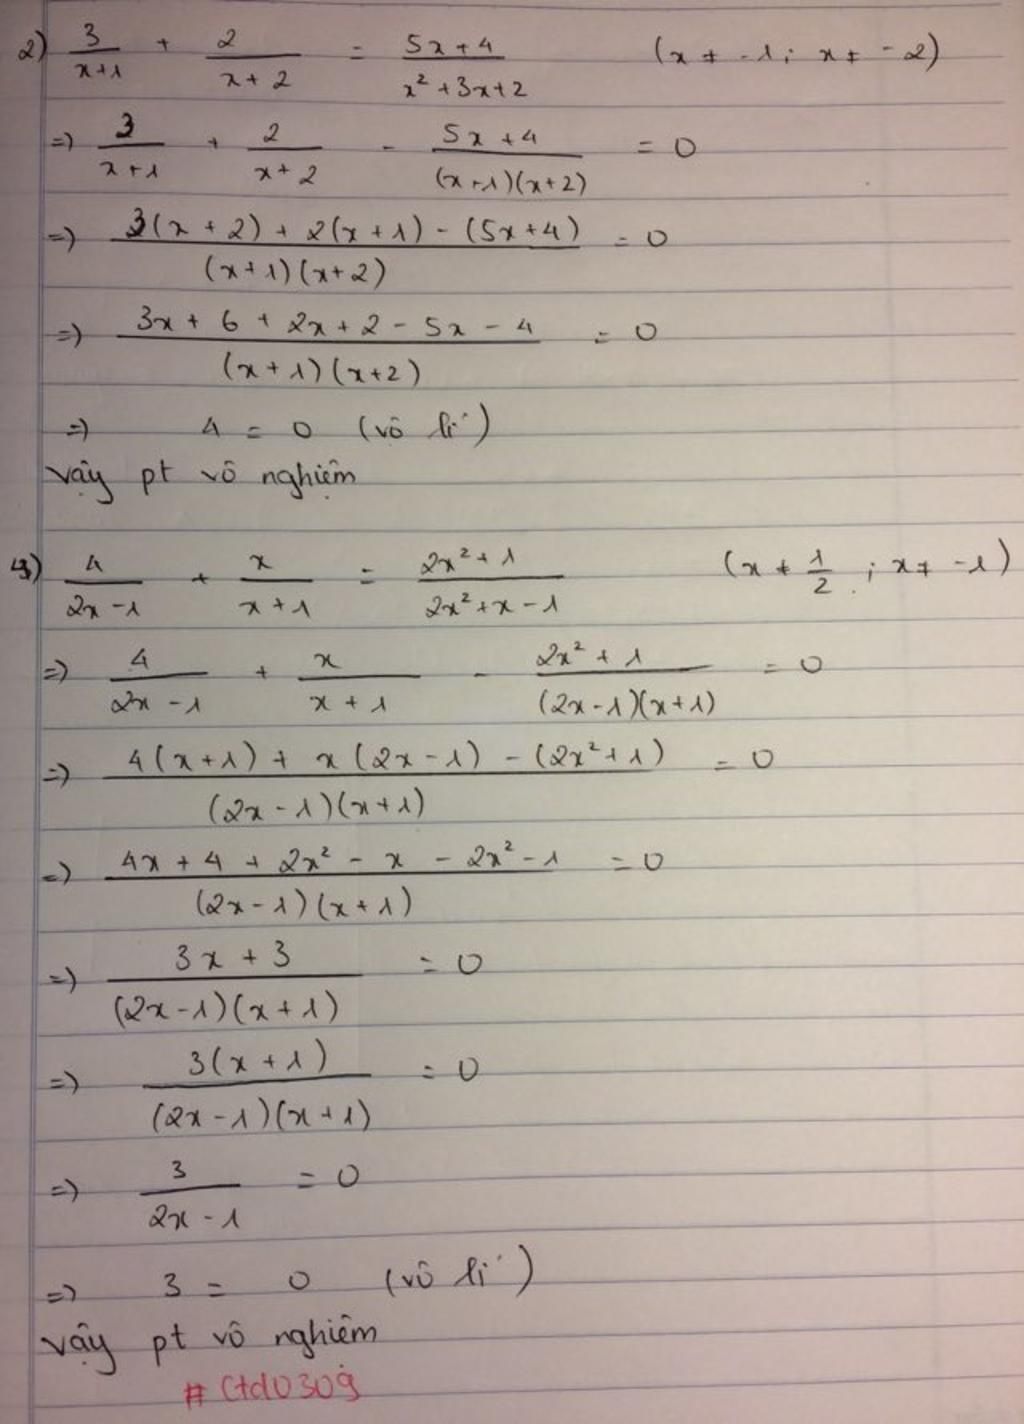 2) 3/(x+1) + 2/(x+2) = (5x+4)/(x²+3x+2) (x ≠ -1; x ≠ -2)
=> 3/(x+1) + 2/(x+2) - (5x+4)/((x+1)(x+2)) = 0
=> (3(x+2) + 2(x+1) - (5x+4))/((x+1)(x+2)) = 0
=> (3x + 6 + 2x + 2 - 5x - 4)/((x+1)(x+2)) = 0
=> 4 = 0 (vô lí)
vậy pt vô nghiệm
4) 4/(2x-1) + x/(x+1) = (2x²+1)/(2x²+x-1) (x ≠ 1/2; x ≠ -1)
=> 4/(2x-1) + x/(x+1) - (2x²+1)/((2x-1)(x+1)) = 0
=> (4(x+1) + x(2x-1) - (2x²+1))/((2x-1)(x+1)) = 0
=> (4x + 4 + 2x² - x - 2x² - 1)/((2x-1)(x+1)) = 0
=> (3x+3)/((2x-1)(x+1)) = 0
=> (3(x+1))/((2x-1)(x+1)) = 0
=> 3/(2x-1) = 0
=> 3 = 0 (vô lí)
vậy pt vô nghiệm